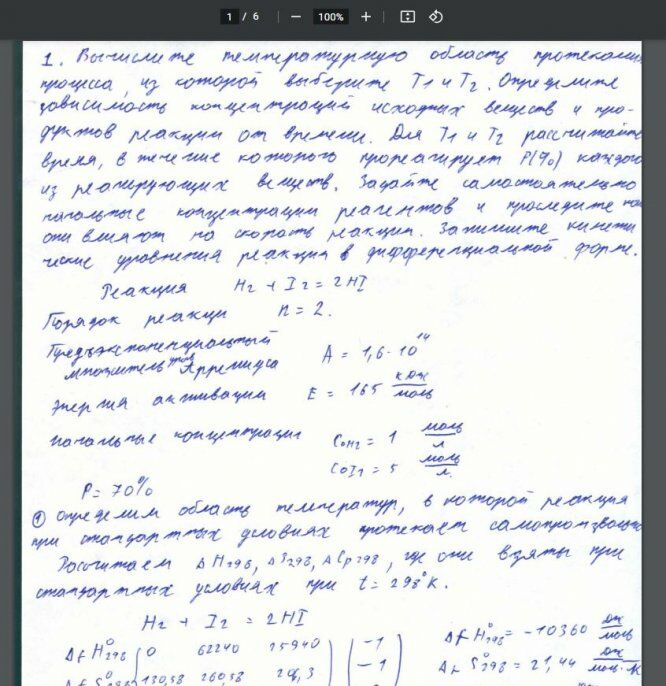 1 / 6 − 100% +
1. Вычислите температурную область протекания
процесса, из которой выберите T1 и T2. Определите
зависимость концентраций исходных веществ и про-
дуктов реакции от времени. Для T1 и T2 рассчитайте
время, в течение которого прореагирует P(%) каждого
из реагирующих веществ. Задайте самостоятельно
начальные концентрации реагентов и проследите как
они влияют на скорость реакции. Запишите кинети
ческие уравнения реакции в дифференциальной форме.
Реакция H2 + I2 = 2HI
Порядок реакци n = 2.
Предэкспоненциальный
множитель Аррениуса A = 1,6·10^14
энергия активации E = 165 кДж/моль
начальные концентрации C0H2 = 1 моль/л
C0I2 = 5 моль/л.
P = 70%
① Определим область температур, в которой реакция
при стандартных условиях протекает самопроизвольно
Рассчитаем ΔH298, ΔS298, ΔCp298, где они взяты при
стандартных условиях при t = 298°К.
H2 + I2 = 2HI
ΔfH°298 0 62240 25940 −1 ΔrH°298 = −10360 Дж/моль
ΔfS°298 130,58 260,58 206,3 −1 ΔrS°298 = 21,44 Дж/моль·К